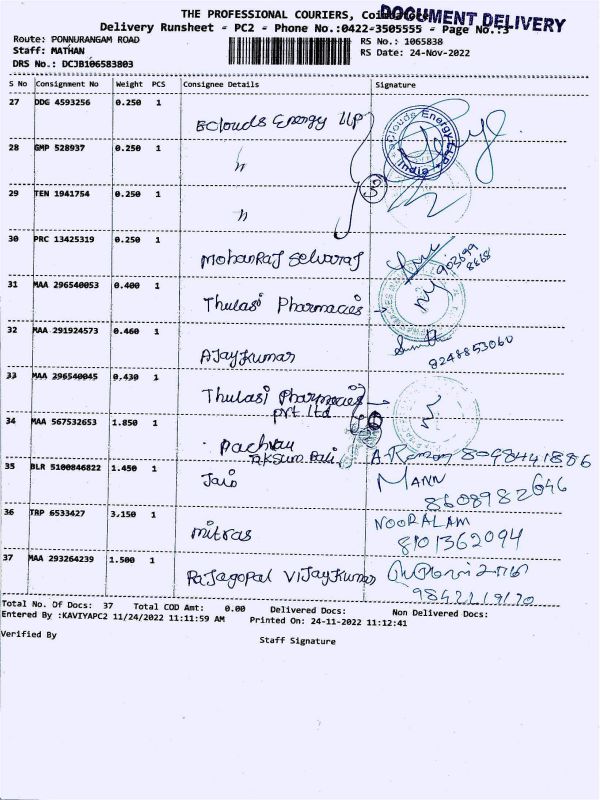 THE PROFESSIONAL COURIERS,
DOCUMENT DELIVERY
Delivery Runsheet - PC2 - Phone No.:0422-3505555 - Page No.:3
Route: PONNURANGAM ROAD
RS No.: 1065838
Staff: MATHAN
RS Date: 24-Nov-2022
DRS No.: DCJB106583803
S No Consignment No Weight PCS Consignee Details Signature
27 DDG 4593256 0.250 1 EClouds Energy llp
eClouds Energy LLP
28 GMP 528937 0.250 1 "
29 TEN 1941754 0.250 1 "
3
30 PRC 13425319 0.250 1 MohanRaj Selvaraj
903699
8668
31 MAA 296540053 0.400 1 Thulasi Pharmacies
32 MAA 291924573 0.460 1 AJayKumar
8248853060
33 MAA 296540045 0.430 1 Thulasi Pharmacies
pvt ltd
34 MAA 567532653 1.850 1
A. Raman 8098441886
35 BLR 5100846822 1.450 1 Jain MANN
8608982646
36 TRP 6533427 3.150 1 mitras NOORALAM
8101362094
37 MAA 293264239 1.500 1 RaJagopal ViJayKumar
Total No. Of Docs: 37 Total COD Amt: 0.00 Delivered Docs: Non Delivered Docs:
Entered By :KAVIYAPC2 11/24/2022 11:11:59 AM Printed On: 24-11-2022 11:12:41
Verified By Staff Signature